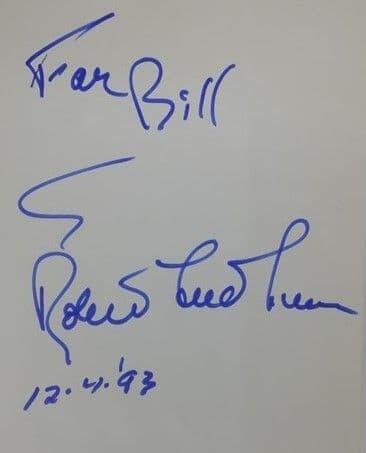 For Bill
Robert Ludlum
12.4.'93